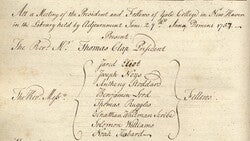 At a Meeting of the President and Fellows of Yale College in New Haven
in the Library held by Adjournment June 27th Anno Domini 17
Present
The Revd Mr. Thomas Clap President
Jared Eliot
Joseph Noyes
Anthony Stoddard
Benjamin Lord
The Revd Messrs. Thomas Ruggles Fellows
Solomon Williams
Noah Hobard